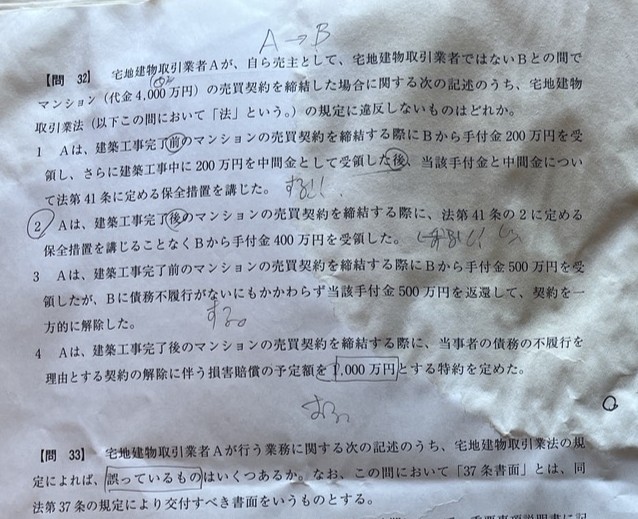 A→B
【問 32】 宅地建物取引業者Aが、自ら売主として、宅地建物取引業者ではないBとの間で
マンション（代金4,000万円）の売買契約を締結した場合に関する次の記述のうち、宅地建物
取引業法（以下この問において「法」という。）の規定に違反しないものはどれか。
1 Aは、建築工事完了前のマンションの売買契約を締結する際にBから手付金200万円を受
領し、さらに建築工事中に200万円を中間金として受領した後、当該手付金と中間金につい
て法第41条に定める保全措置を講じた。 する
2 Aは、建築工事完了後のマンションの売買契約を締結する際に、法第41条の2に定める
保全措置を講じることなくBから手付金400万円を受領した。
3 Aは、建築工事完了前のマンションの売買契約を締結する際にBから手付金500万円を受
領したが、Bに債務不履行がないにもかかわらず当該手付金500万円を返還して、契約を一
方的に解除した。 する
4 Aは、建築工事完了後のマンションの売買契約を締結する際に、当事者の債務の不履行を
理由とする契約の解除に伴う損害賠償の予定額を1,000万円とする特約を定めた。
する
【問 33】 宅地建物取引業者Aが行う業務に関する次の記述のうち、宅地建物取引業法の規
定によれば、誤っているものはいくつあるか。なお、この問において「37条書面」とは、同
法第37条の規定により交付すべき書面をいうものとする。